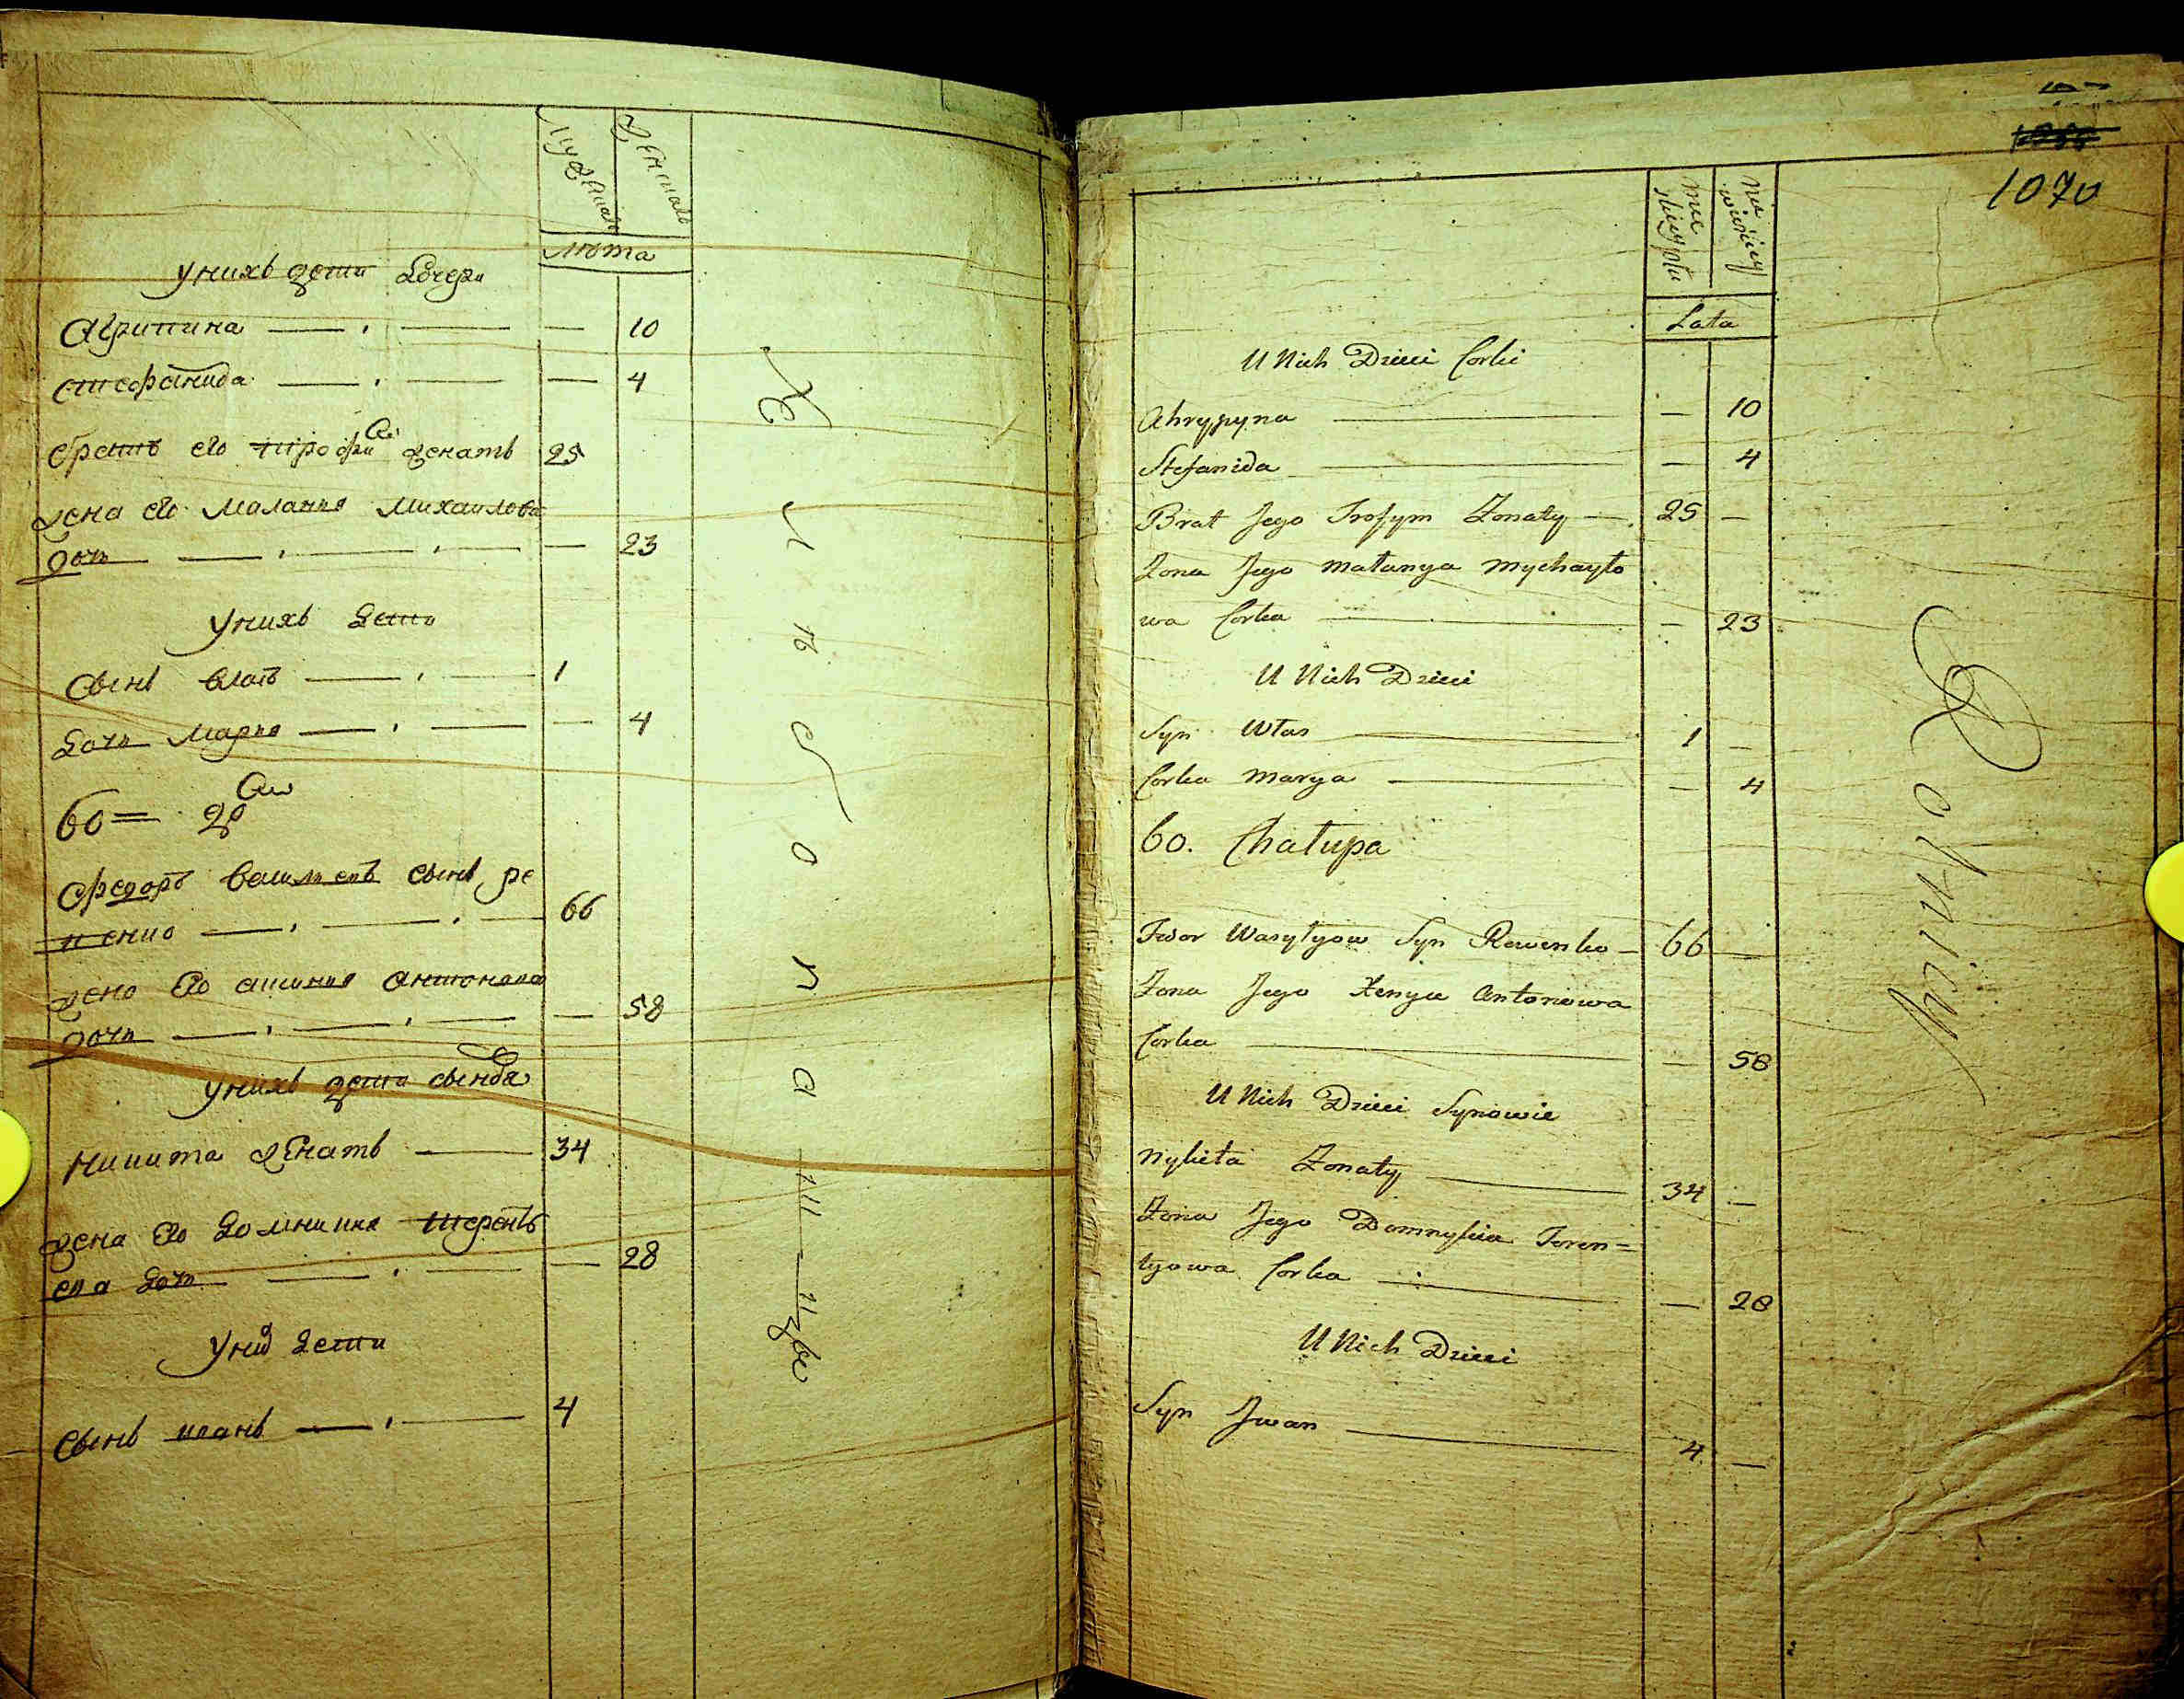 Мужска
Женска
Люта
У нихъ дети дочери
Агрипина — — — 10
Стефанида — — — 4
братъ его трофи женатъ 25
жена его Малания Михаилова
дочь — — — 23
У нихъ дети
Сынъ власъ — — 1
дочь Мария — — — 4
60 = дво
Федоръ Василиевъ сынъ ре
венко — — 66
жена его Антонова
дочь — — — 58
У нихъ дети сынове
Никита женатъ — 34
жена его Домникия терентъ
ева дочь — — — 28
У них дети
Сынъ иванъ — — 4
Хлѣборашцы
1070
Męzkiey płci
Niewieściey
Lata
U Nich Dzieci Corki
Ahrypyna — — 10
Stefanida — — 4
Brat Jego Trofym Zonaty — 25 —
Zona Jego Małanya Mychayło
wa Corka — — 23
U Nich Dzieci
Syn Włas — 1 —
Corka Marya — — 4
60. Chałupa
Fedor Wasylyow Syn Rewenko — 66 —
Zona Jego Xenya Antonowa
Corka — — 58
U Nich Dzieci Synowie
Nykita Zonaty — 34 —
Zona Jego Domnykia Teren=
tyowa Corka — — 28
U Nich Dzieci
Syn Jwan — 4 —
Rolnicy